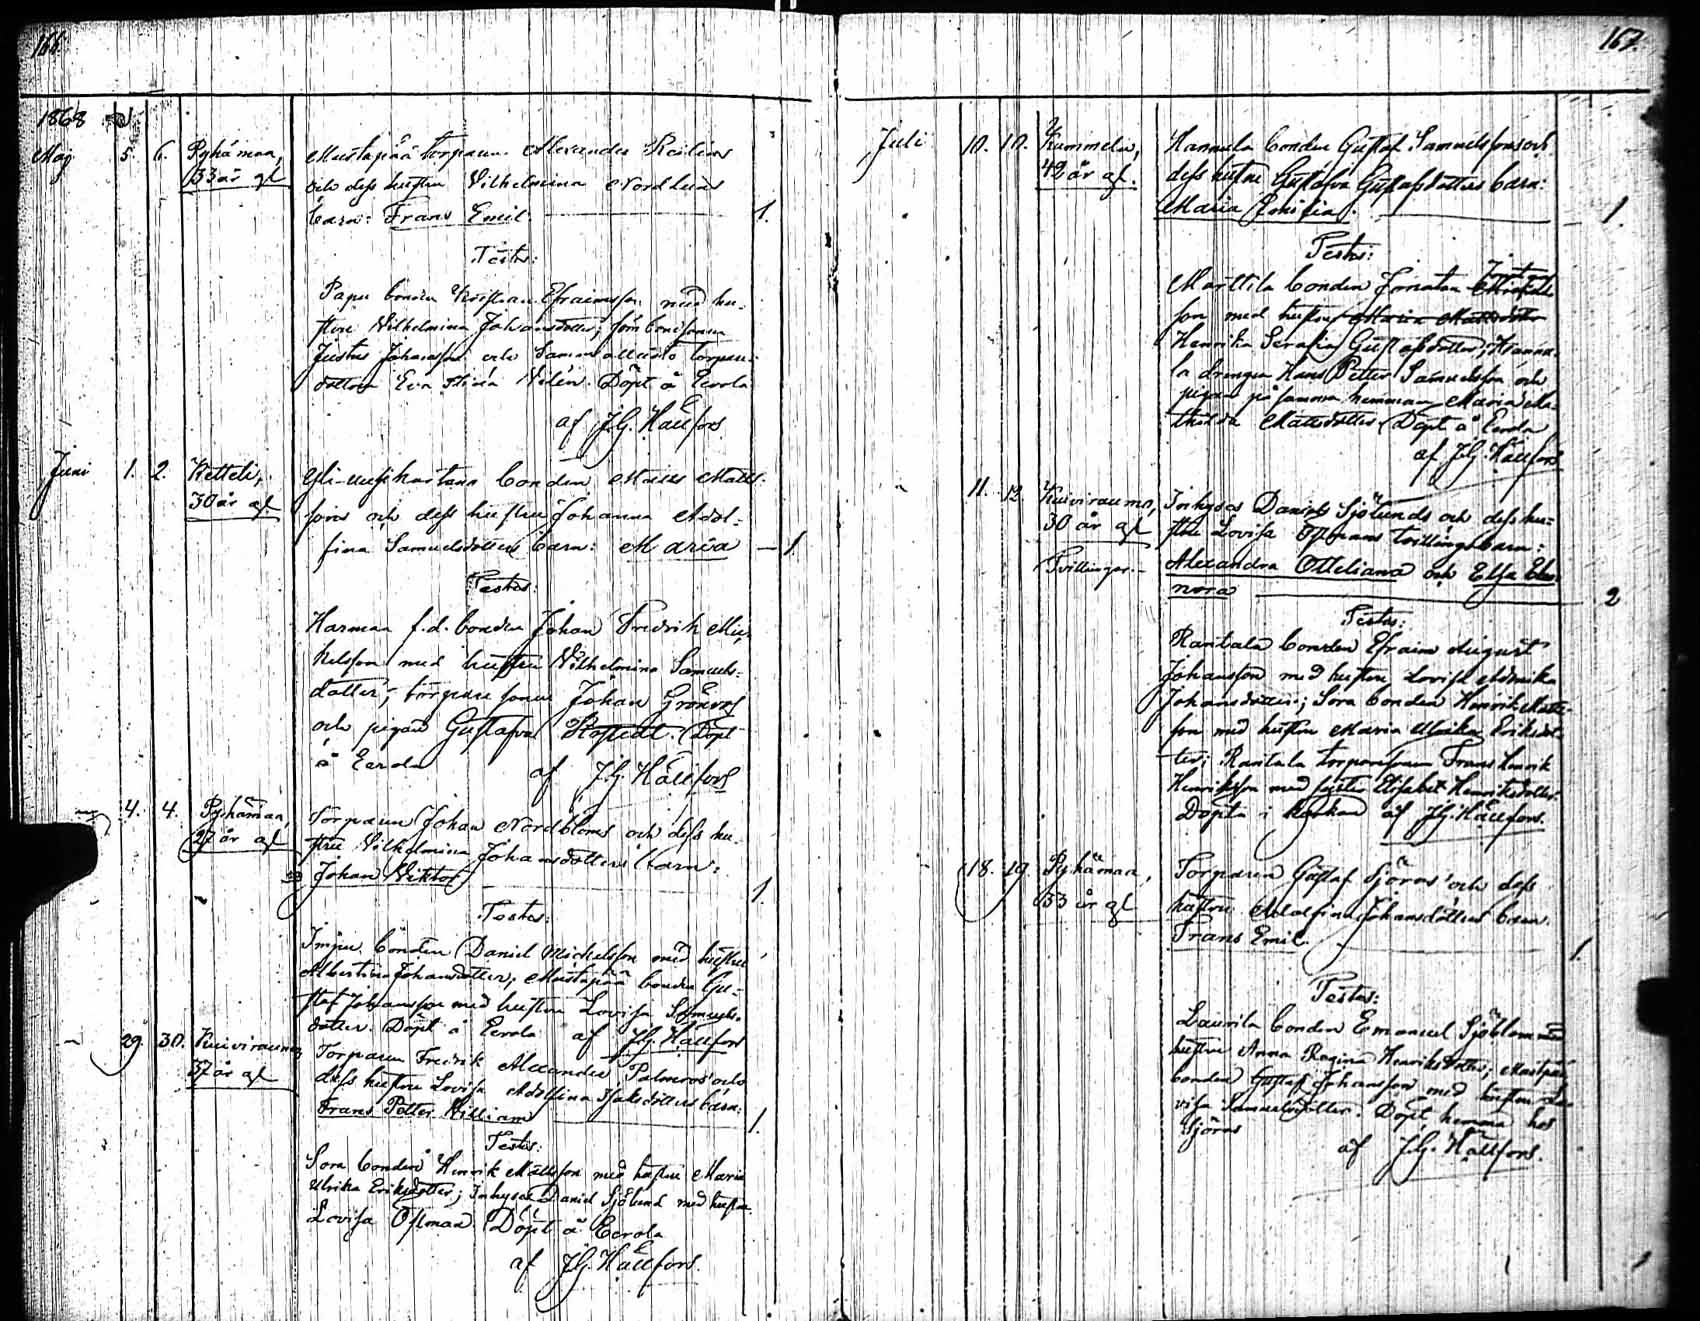 166.
1868
Maj 5. 6. Pyhämaa, Mustapää torparen Alexander
33 år gl och dess hustru Vilhelmina Nordlunds
barn: Frans Emil. 1.
Testes:
Papu bonden Efraimsson med hu-
stru Vilhelmina Johansdotter;
Justus Johansson och torpare-
dottren Eva Stina Velén. Döpt å Eerola
af J.G. Hällfors
Juni 1. 2. Ketteli, bonden Matts-
30 år gl sons och dess hustru Johanna Adol-
fina Samuelsdotters barn: Maria 1.
Testes:
Harman f.d. bonden Johan Fredrik Mic-
kelsson med hustru Vilhelmina Samuels-
dotter; torpare sonen Johan Grönros
och pigan Gustafva Döpt
å Eerola af J.G. Hällfors
4. 4. Pyhämaa, Torparen Johan Nordbloms och dess hu-
27 år gl stru Vilhelmina Johansdotters barn:
Johan Viktor 1.
Testes:
bonden Daniel Michelsson med hustru
Albertina Johansdotter; Mustapää bonden Gu-
staf Johansson med hustru Lovisa Samuels-
dotter. Döpt å Eerola af J.G. Hällfors
29. 30. Kuivirauma, Torparen Fredrik Alexander Palmros' och
37 år gl dess hustru Lovisa Adolfina Isaksdotters barn:
Frans Petter William 1.
Testes:
Sora bonden Henrik Mattsson med hustru Maria
Ulrika Eriksdotter; Inhyses Daniel Sjölund med hustru
Lovisa Östman. Döpt å Eerola
af J.G. Hällfors.
167.
Juli 10. 10. Kammela, Hannula bonden Gustaf Samuelssons och
49 år gl. dess hustru Gustafva Gustafsdotters barn:
Maria Emilia. 1.
Testes:
Marttila bonden Jonatan
son med hustru Maria Mattsdotter
Henrika Serafia Gustafsdotter; Hannu-
la drengen Hans Petter Samuelsson och
pigan på samma hemman Maria Ma-
thilda Mattsdotter. Döpt å Eerola
af J.G. Hällfors
11. 12. Kuivirauma, Inhyses Daniel Sjölunds och dess hu-
30 år gl stru Lovisa Östmans tvillingebarn:
Tvillingar. Alexandra Otteliana och Elsa Eleo-
nora 2
Testes:
Rantala bonden Efraim August
Johansson med hustru Lovisa
Johansdotter; Sora bonden Henrik Matts-
son med hustru Maria Ulrika Eriksdot-
ter; Rantala Frans Henrik
Henriksson med syster Elisabet Henriksdotter.
Döpta i af J.G. Hällfors.
18. 19. Pyhämaa, Torparen Gustaf Sjöros' och dess
33 år gl hustru Adolfina Johansdotters barn
Frans Emil. 1.
Testes:
Laurila bonden Emanuel Sjöblom med
hustru Anna Regina Henriksdotter; Mustpää
bonden Gustaf Johansson med hustru Lo-
visa Samuelsdotter. Döpt hemma hos
Sjöros
af J.G. Hällfors.